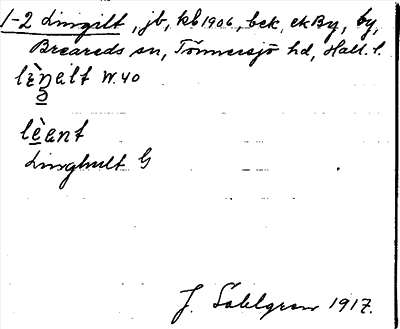 1-2 Lingilt, jb, kb 1906, bek, ek By, by,
Breareds sn, Tönnersjö hd, Hall. l.
W. 40
lèant
Linghult G
J. Sahlgren 1917.